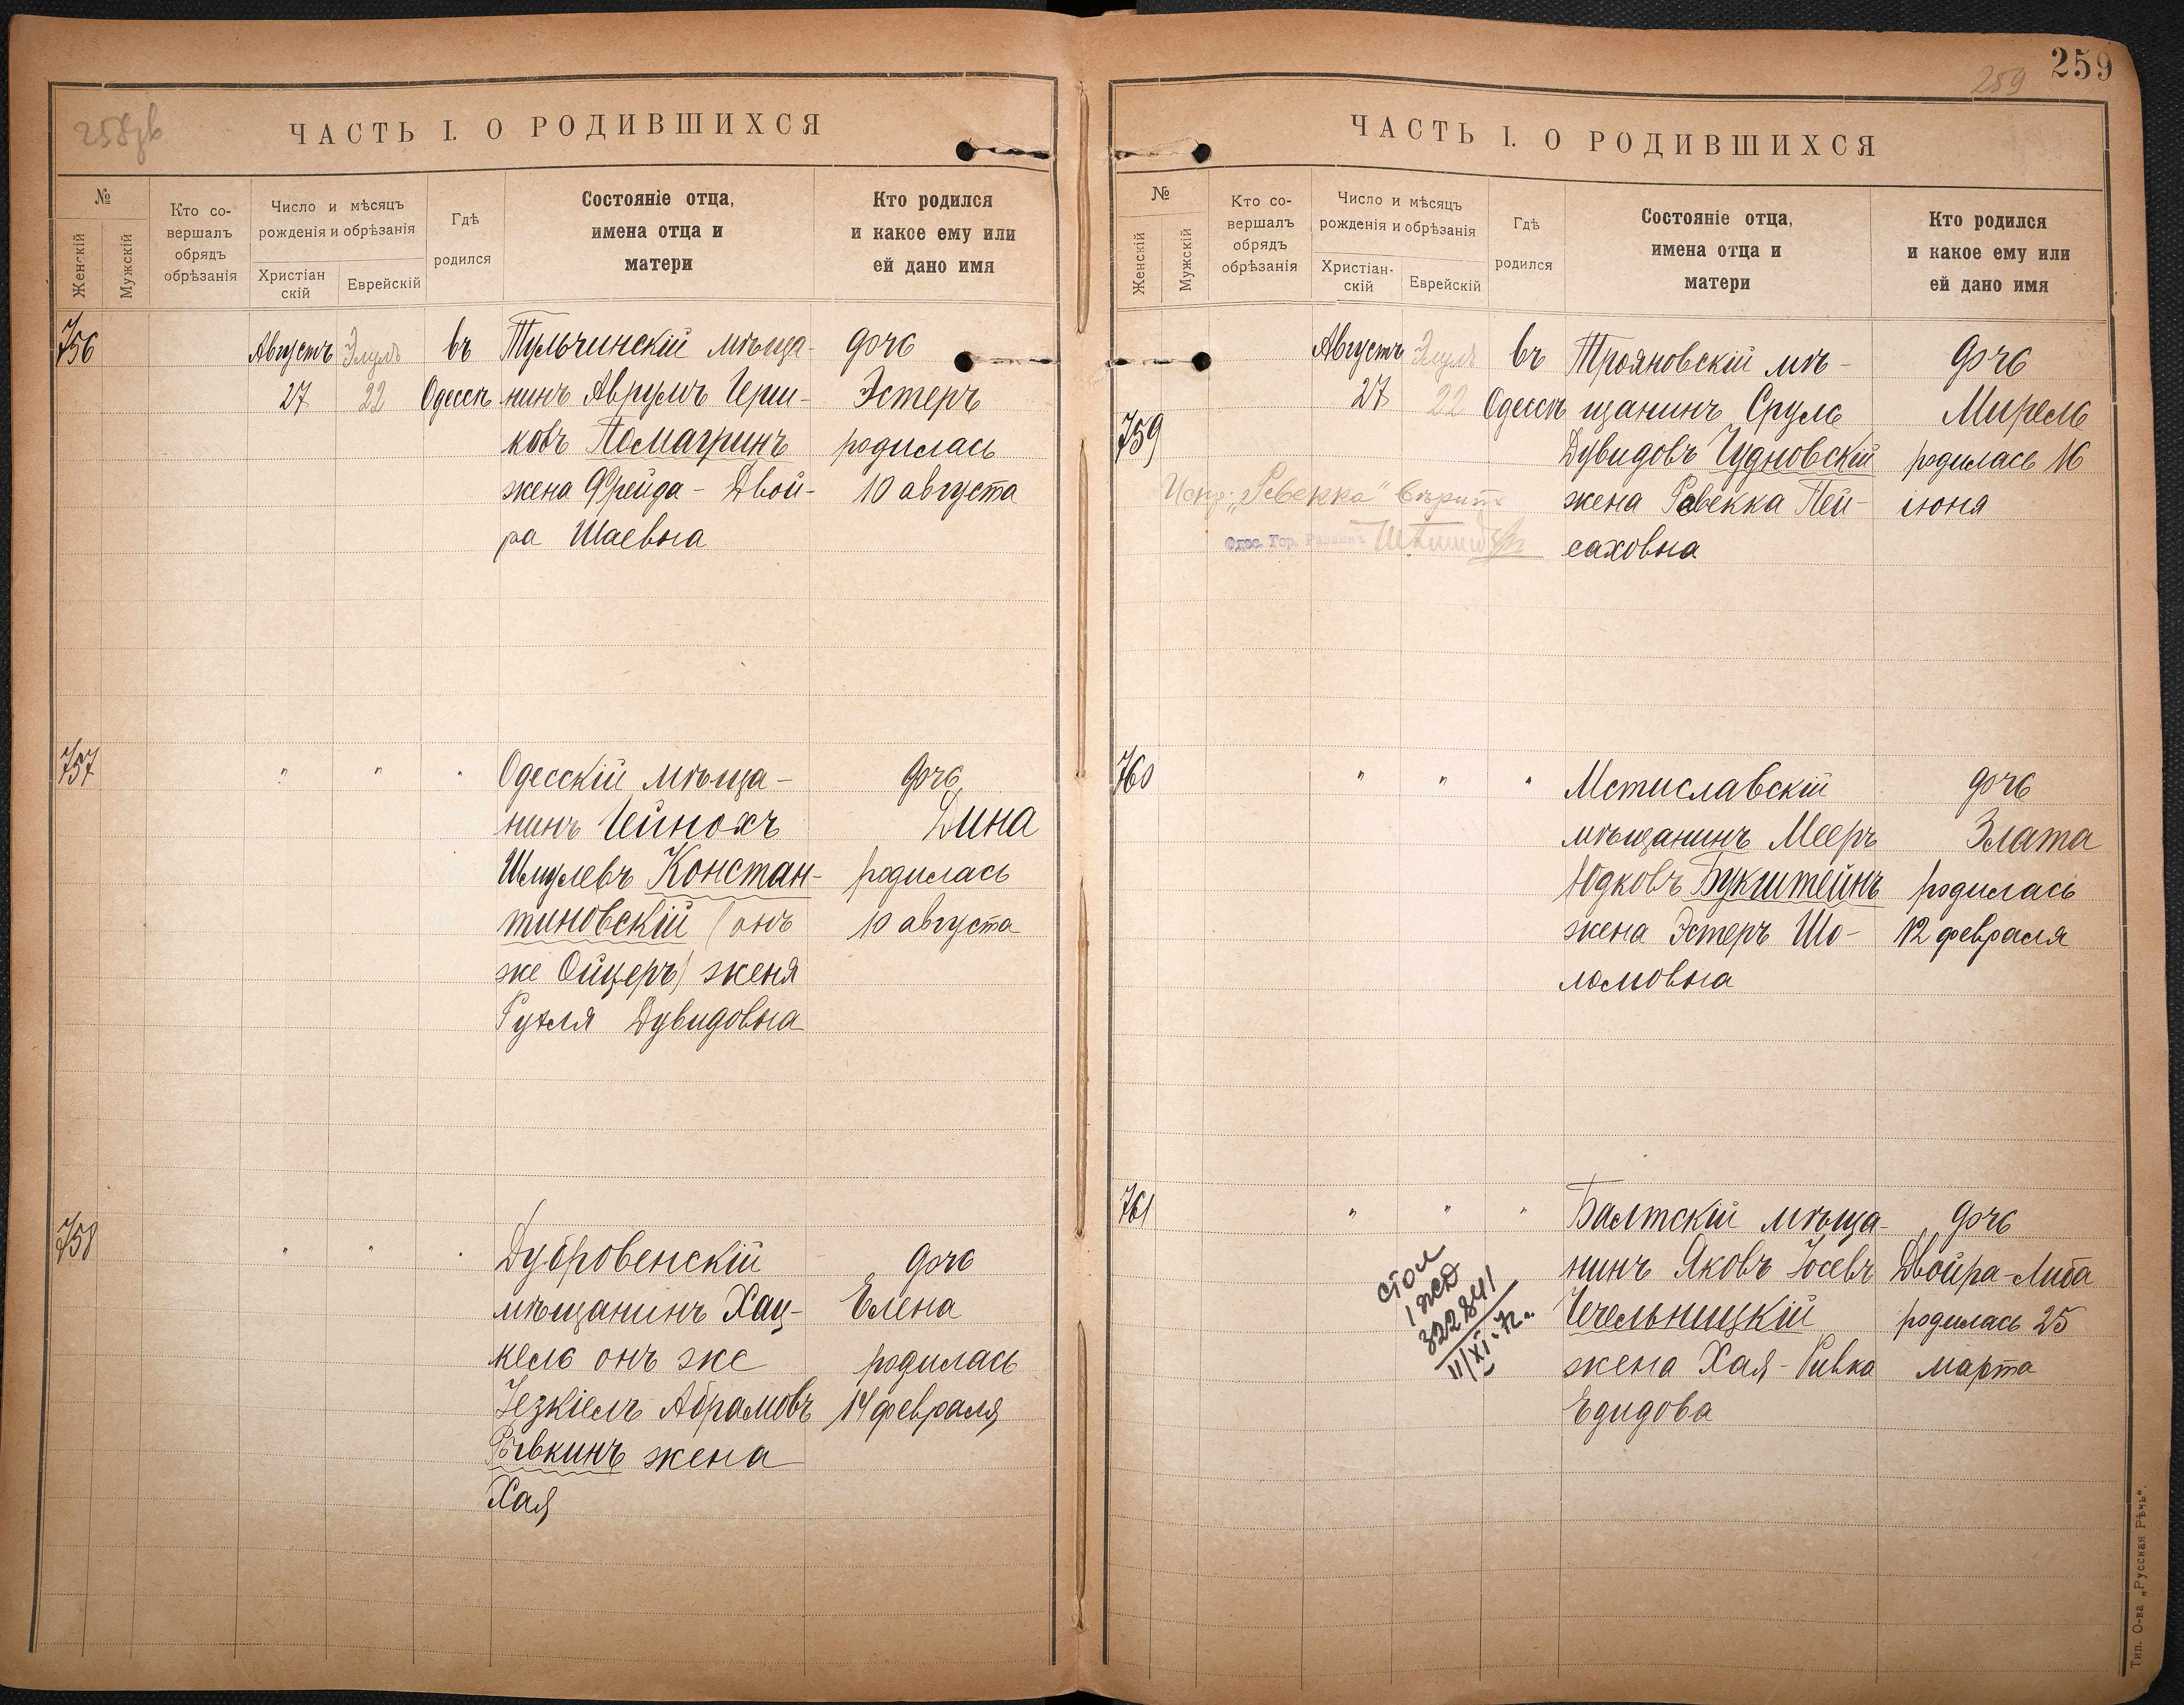 258 об
ЧАСТЬ I. О РОДИВШИХСЯ
№
Женскій
Мужскій
Кто со-
вершалъ
обрядъ
обрѣзанія
Число и мѣсяцъ
рожденія и обрѣзанія
Христіан
скій
Еврейскій
Гдѣ
родился
Состояніе отца,
имена отца и
матери
Кто родился
и какое ему или
ей дано имя
756
Августъ
27
Элулъ
22
въ
Одессѣ
Тульчинскій мѣща-
нинъ Аврумъ Герш-
ковъ Помагринъ
жена Фрейда-Двой-
ра Шаевна
дочь
Эстеръ
родилась
10 августа
757
" " "
Одесскій мѣща-
нинъ Гейнохъ
Шмулевъ Констан-
тиновскій (онъ
же Ойцеръ) женя
Рухля Дувидовна
дочь
Дина
родилась
10 августа
758
" " "
Дубровенскій
мѣщанинъ Хац-
кель онъ же
Іезкіель Абрамовъ
Рывкинъ жена
Хая
дочь
Елена
родилась
14 февраля
259
259
ЧАСТЬ I. О РОДИВШИХСЯ
№
Женскій
Мужскій
Кто со-
вершалъ
обрядъ
обрѣзанія
Число и мѣсяцъ
рожденія и обрѣзанія
Христіан-
скій
Еврейскій
Гдѣ
родился
Состояніе отца,
имена отца и
матери
Кто родился
и какое ему или
ей дано имя
759
Августъ
27
Элулъ
22
въ
Одессѣ
Трояновскій мѣ-
щанинъ Сруль
Дувидовъ Чудновскій
жена Ревекка Пей-
саховна
дочь
Мирель
родилась 16
июня
Испр. "Ревекка" вѣрить
Одес. Гор. Раввинъ
760
" " "
Мстиславскій
мѣщанинъ Мееръ
Юдковъ Букштейнъ
жена Эстеръ Шо-
ломовна
дочь
Злата
родилась
12 февраля
761
" " "
Балтскій мѣща-
нинъ Яковъ Іосевъ
Чечельницкій
жена Хая-Ривка
Едидова
дочь
Двойра-Либа
родилась 25
марта
стол
322841
11/XI-
Тип. О-ва „Русская Рѣчь".